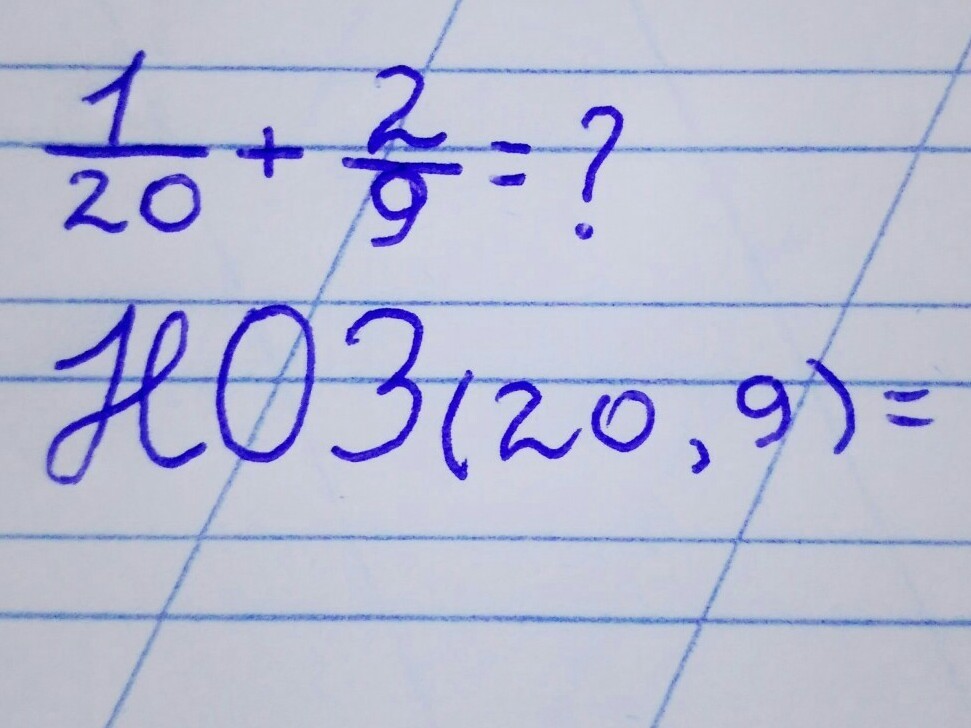 1/20 + 2/9 = ?
НОЗ(20, 9) =